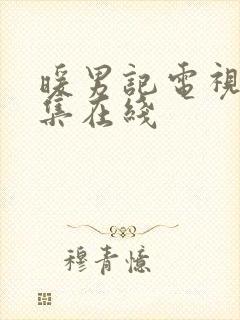 暖男記電視
集在綫
穆青憶